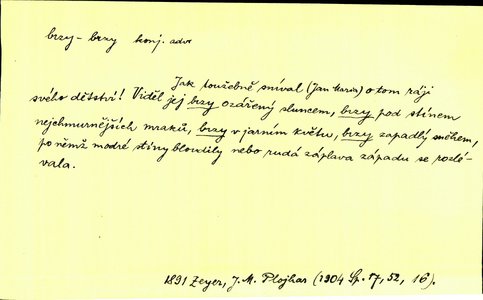 brzy - brzy konj. adv.
Jak toužebně sníval (Jan Maria) o tom ráji
svého dětství! Viděl jej brzy ozářený sluncem, brzy pod stínem
nejchmurnějších mraků, brzy v jarním květu, brzy zapadlý sněhem,
po němž modré stíny bloudily nebo rudá záplava západu se rozlé-
vala.
1891 Zeyer, J. M. Plojhar (1904 Sp. 17, 52, 16).